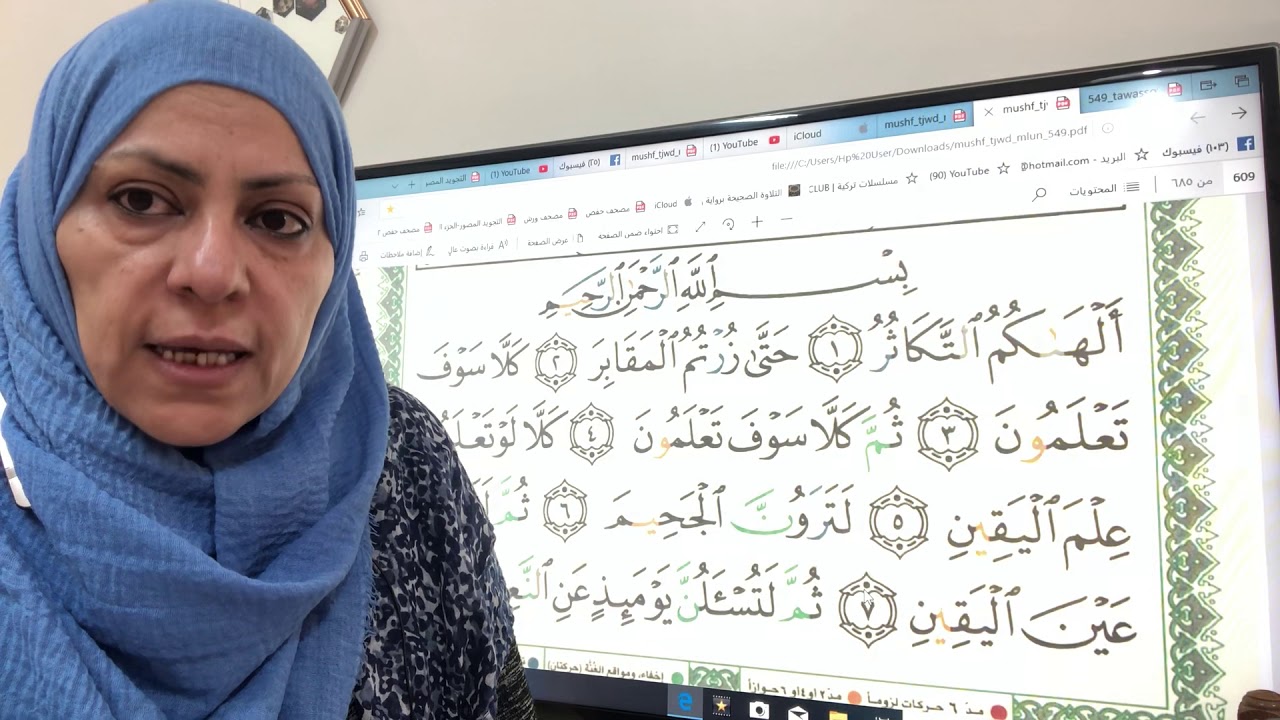 549_tawasso
mushf_tjv
mushf_tjwd_r
iCloud
(1) YouTube
mushf_tjwd_r
(٢٥) فيسبوك
(1) YouTube
التجويد المصر
file:///C:/Users/Hp%20User/Downloads/mushf_tjwd_mlun_549.pdf
(١٠٣) فيسبوك
البريد - hotmail.com
(90) YouTube
مسلسلات تركية | CLUB
التلاوة الصحيحة برواية
iCloud
مصحف حفص
مصحف ورش
التجويد المصور-الجزء ال
مصحف حفص ٢
609
من ٦٨٥
المحتويات
احتواء ضمن الصفحة
عرض الصفحة
قراءة بصوت عالٍ
إضافة ملاحظات
بِسْمِ ٱللَّهِ ٱلرَّحْمَٰنِ ٱلرَّحِيمِ
أَلْهَىٰكُمُ ٱلتَّكَاثُرُ ١ حَتَّىٰ زُرْتُمُ ٱلْمَقَابِرَ ٢ كَلَّا سَوْفَ
تَعْلَمُونَ ٣ ثُمَّ كَلَّا سَوْفَ تَعْلَمُونَ ٤ كَلَّا لَوْ تَعْلَمُ
عِلْمَ ٱلْيَقِينِ ٥ لَتَرَوُنَّ ٱلْجَحِيمَ ٦ ثُمَّ
عَيْنَ ٱلْيَقِينِ ٧ ثُمَّ لَتُسْـَٔلُنَّ يَوْمَئِذٍ عَنِ ٱلنَّعِ
مدّ ٦ حركات لزوماً
مدّ ٢ او ٤ او ٦ جوازاً
إخفاء، ومواقع الغُنَّة (حركتان)